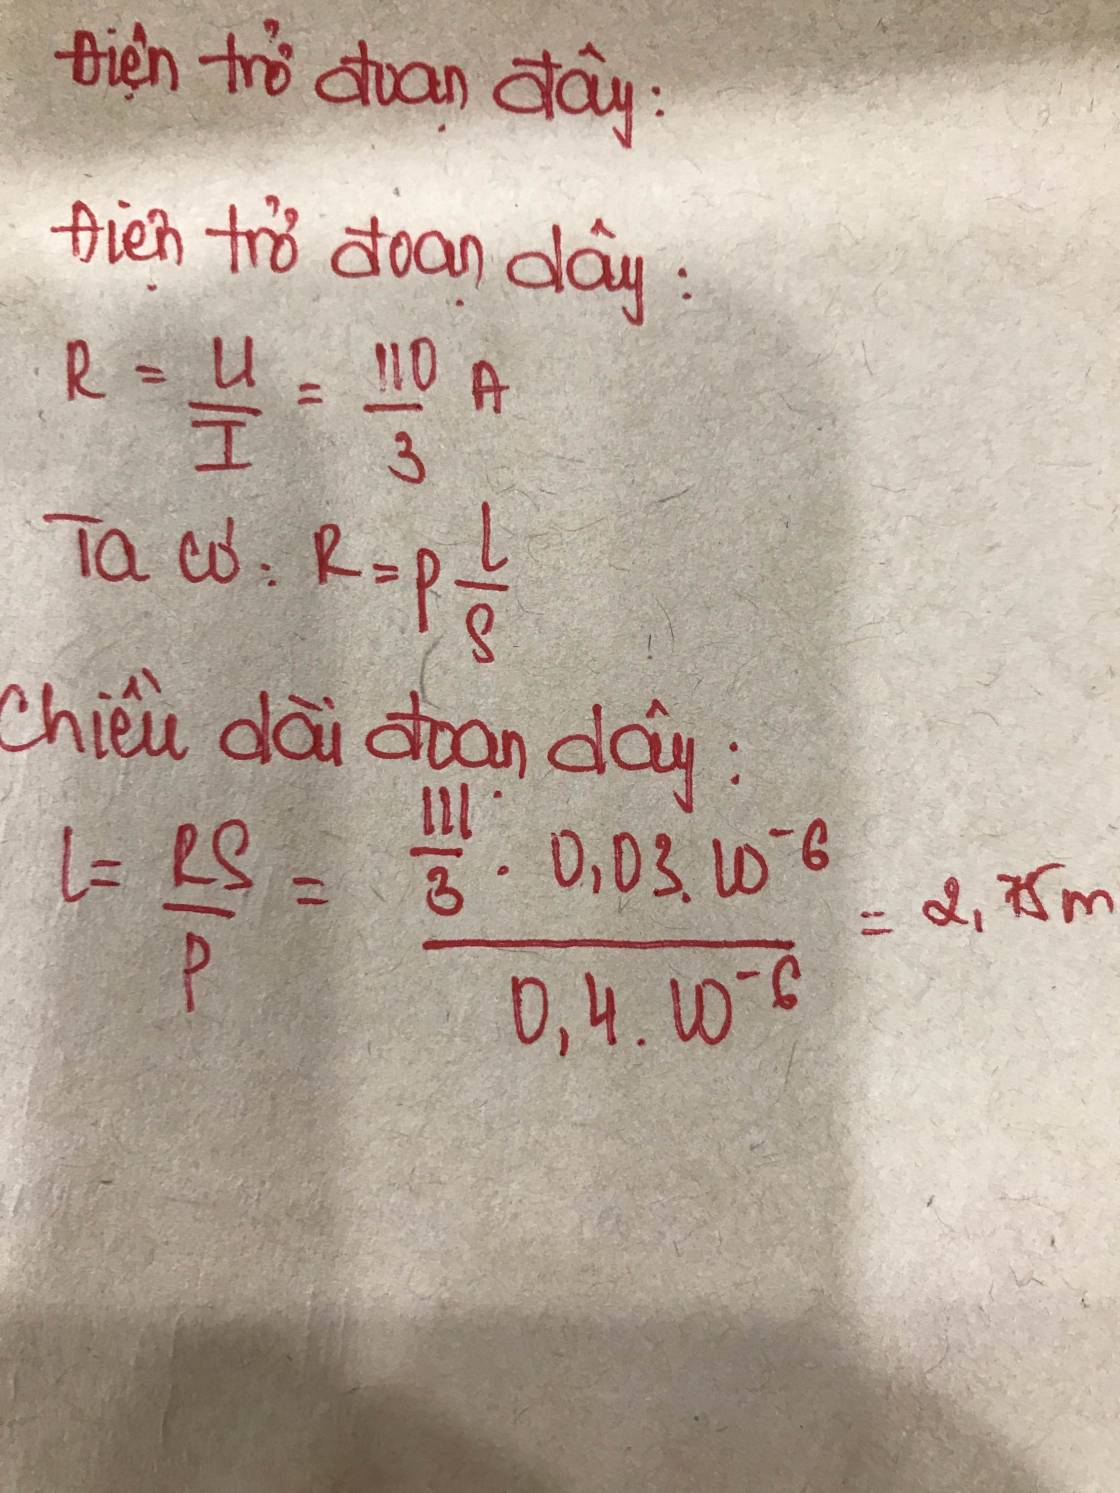 Điện trở đoạn đây:
Điện trở đoạn dây:
R = U/I = 110/3 A
Ta có: R = p l/S
Chiều dài đoạn dây:
l = RS/p = (111/3 . 0,03.10^-6)/(0,4.10^-6) = 2,75m